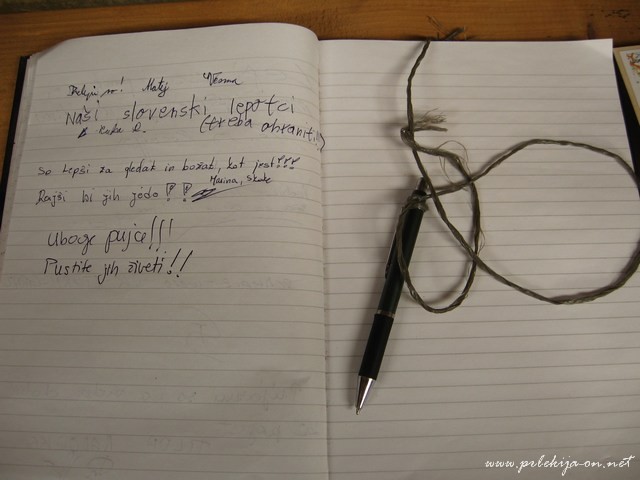 Matej Vesna
Naši slovenski lepotci
(treba ohranit!!)
So lepši za gledat in božat, kot jest!!!
Rajši bi jih jedo!!
Marina,
Uboge pujce!!!
Pustite jih živeti!!
www.prlekija-on.net